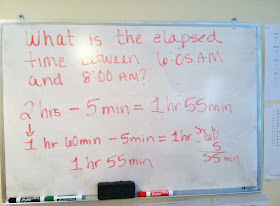 What is the elapsed
time between 6:05 AM
and 8:00 AM?
2 hrs - 5 min = 1 hr 55 min
↓
1 hr 60 min - 5 min = 1 hr
1 hr 55 min
5
55 min